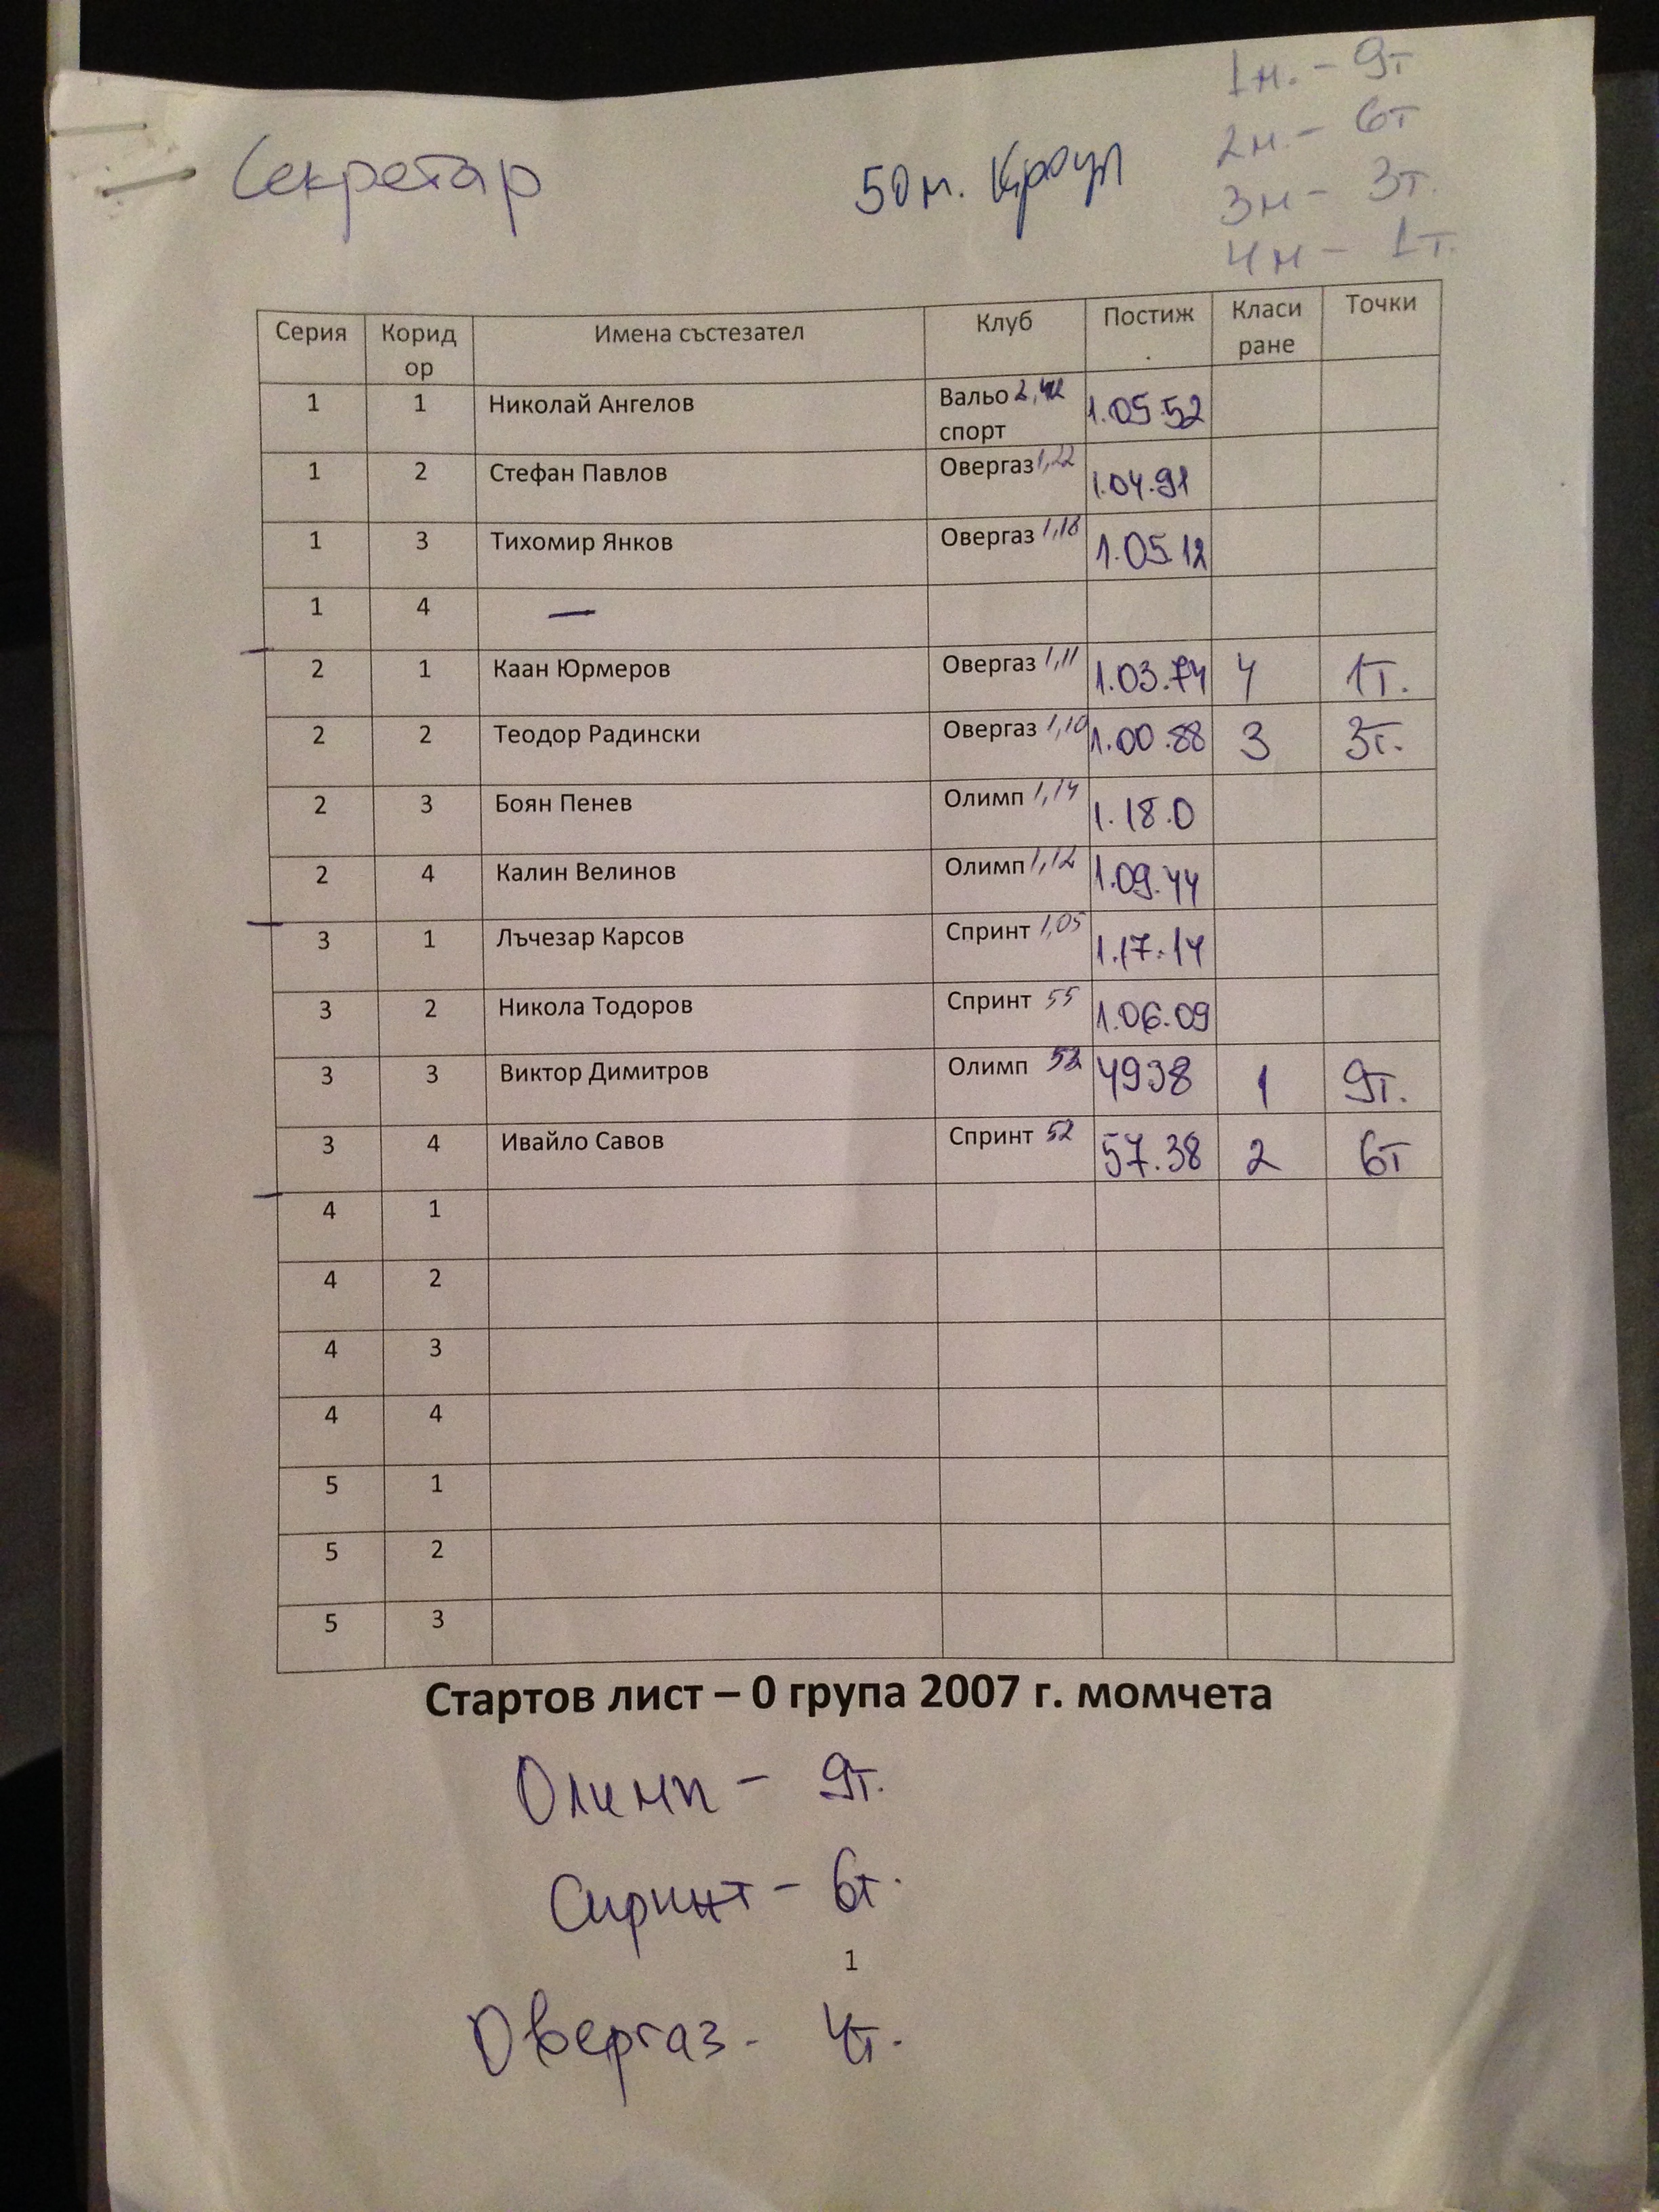 Секретар 50м. Кроул
1м. - 9т
2м. - 6т
3м - 3т.
4м - 1т.
Серия Коридор Имена състезател Клуб Постиж. Класиране Точки
1 1 Николай Ангелов Вальо спорт 2,42 1.05.52
1 2 Стефан Павлов Овергаз 1,22 1.04.91
1 3 Тихомир Янков Овергаз 1,18 1.05.12
1 4 —
2 1 Каан Юрмеров Овергаз 1,11 1.03.74 4 1т.
2 2 Теодор Радински Овергаз 1,10 1.00.88 3 3т.
2 3 Боян Пенев Олимп 1,14 1.18.0
2 4 Калин Велинов Олимп 1,12 1.09.44
3 1 Лъчезар Карсов Спринт 1,05 1.17.14
3 2 Никола Тодоров Спринт 55 1.06.09
3 3 Виктор Димитров Олимп 52 4938 1 9т.
3 4 Ивайло Савов Спринт 52 57.38 2 6т
4 1
4 2
4 3
4 4
5 1
5 2
5 3
Стартов лист – 0 група 2007 г. момчета
Олимп - 9т.
Спринт - 6т.
1
Овергаз - 4т.